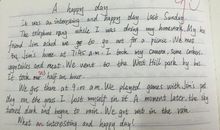 A happy day
It was an interesting and happy day last Sunday.
The telephone rang while I was doing my homework. My best
friend Jim asked me go to go out for a picnic. We met
Jim's home at 7:45 a.m. I took my camera, some
and meat. We went to the West Hill park by bus.
It took me half an hour.
We got there at 9:00 a.m. We played games with Jim's pet
dog on the grass. I lost myself in it. A moment later, the sky
and began to rain. We got wet in the rain.
What an interesting and happy day!